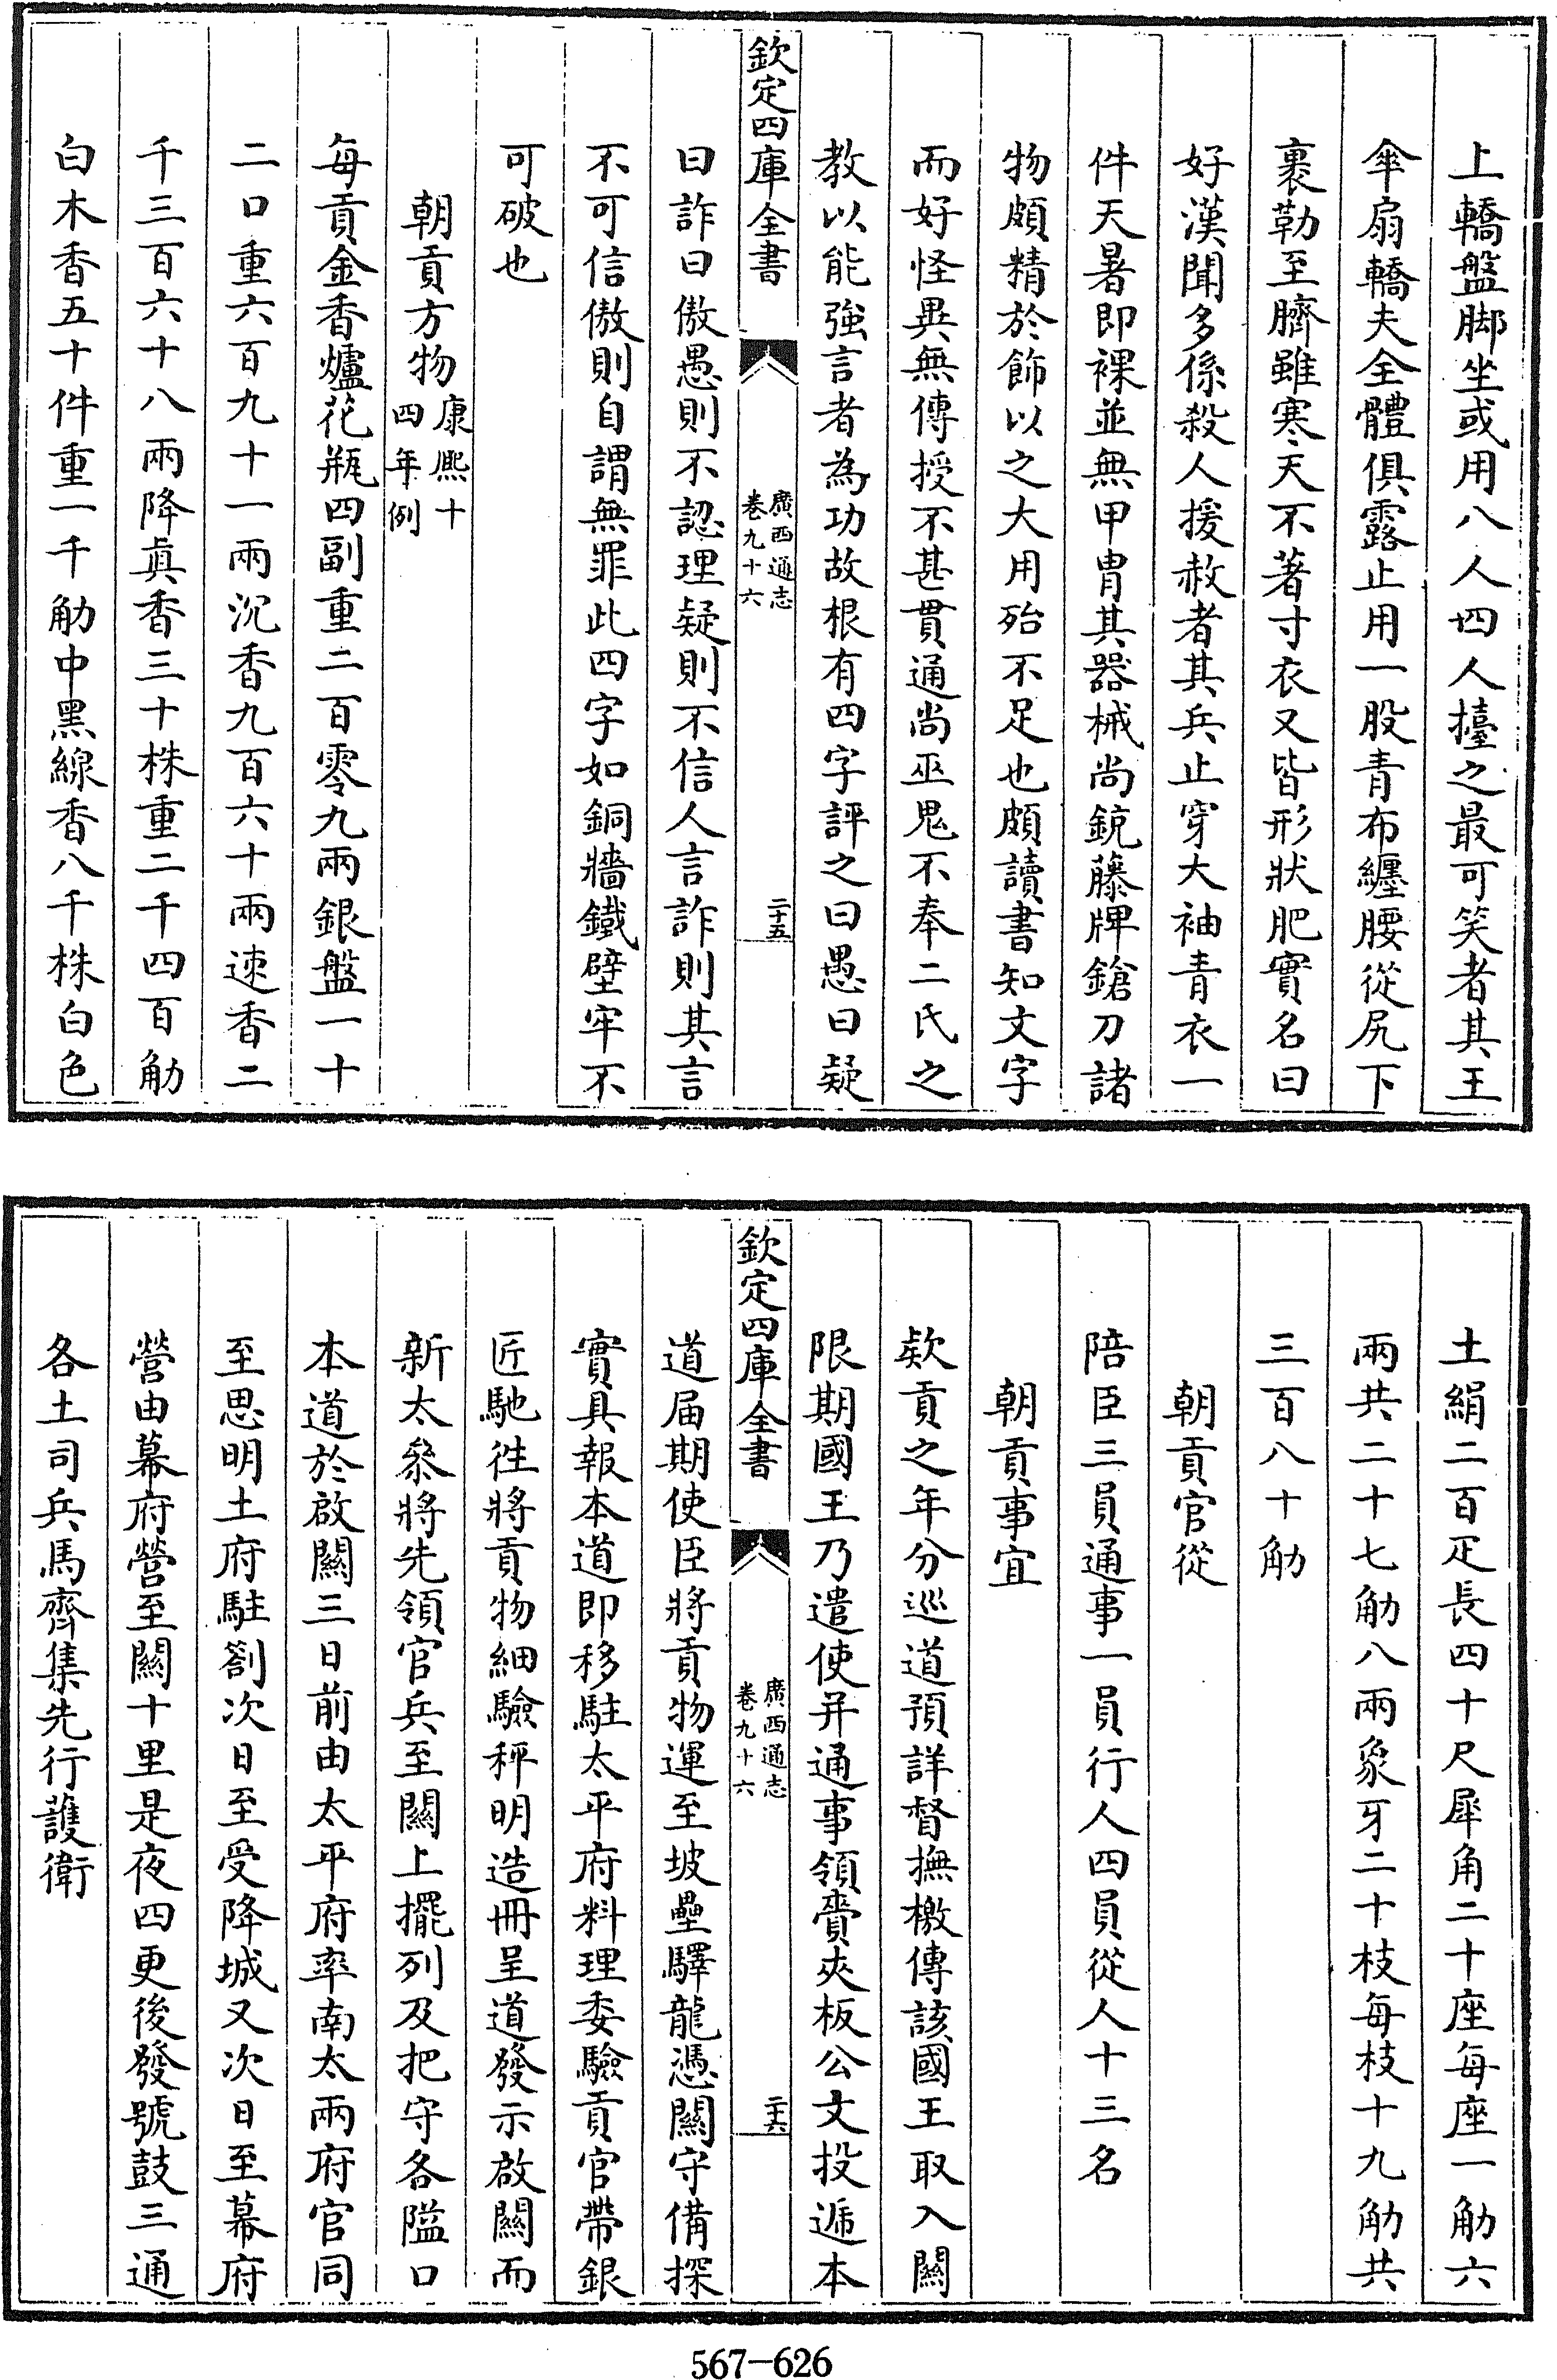 上轎盤脚坐或用八人四人擡之最可笑者其王
傘扇轎夫全體俱露止用一股青布纏腰從尻下
裹勒至臍雖寒天不著寸衣又皆形狀肥實名曰
好漢聞多係殺人援赦者其兵止穿大袖青衣一
件天暑即裸並無甲胄其器械尚銃藤牌鎗刀諸
物頗精於飾以之大用殆不足也頗讀書知文字
而好怪異無傳授不甚貫通尚巫鬼不奉二氏之
教以能強言者為功故根有四字評之曰愚曰疑
欽定四庫全書
廣西通志
卷九十六
二十五
曰詐曰傲愚則不認理疑則不信人言詐則其言
不可信傲則自謂無罪此四字如銅牆鐵壁牢不
可破也
朝貢方物康熙十四年例
每貢金香爐花瓶四副重二百零九兩銀盤一十
二口重六百九十一兩沉香九百六十兩速香二
千三百六十八兩降真香三十株重二千四百觔
白木香五十件重一千觔中黑線香八千株白色
土絹二百疋長四十尺犀角二十座每座一觔六
兩共二十七觔八兩象牙二十枝每枝十九觔共
三百八十觔
朝貢官從
陪臣三員通事一員行人四員從人十三名
朝貢事宜
欵貢之年分巡道預詳督撫檄傳該國王取入關
限期國王乃遣使并通事領賫夾板公文投遞本
欽定四庫全書
廣西通志
卷九十六
二十六
道届期使臣將貢物運至坡壘驛龍憑關守備探
實具報本道即移駐太平府料理委驗貢官帶銀
匠馳徃將貢物細驗秤明造冊呈道發示啟關而
新太叅將先領官兵至關上擺列及把守各隘口
本道於啟關三日前由太平府率南太兩府官同
至思明土府駐劄次日至受降城又次日至幕府
營由幕府營至關十里是夜四更後發號鼓三通
各土司兵馬齊集先行護衛
567-626